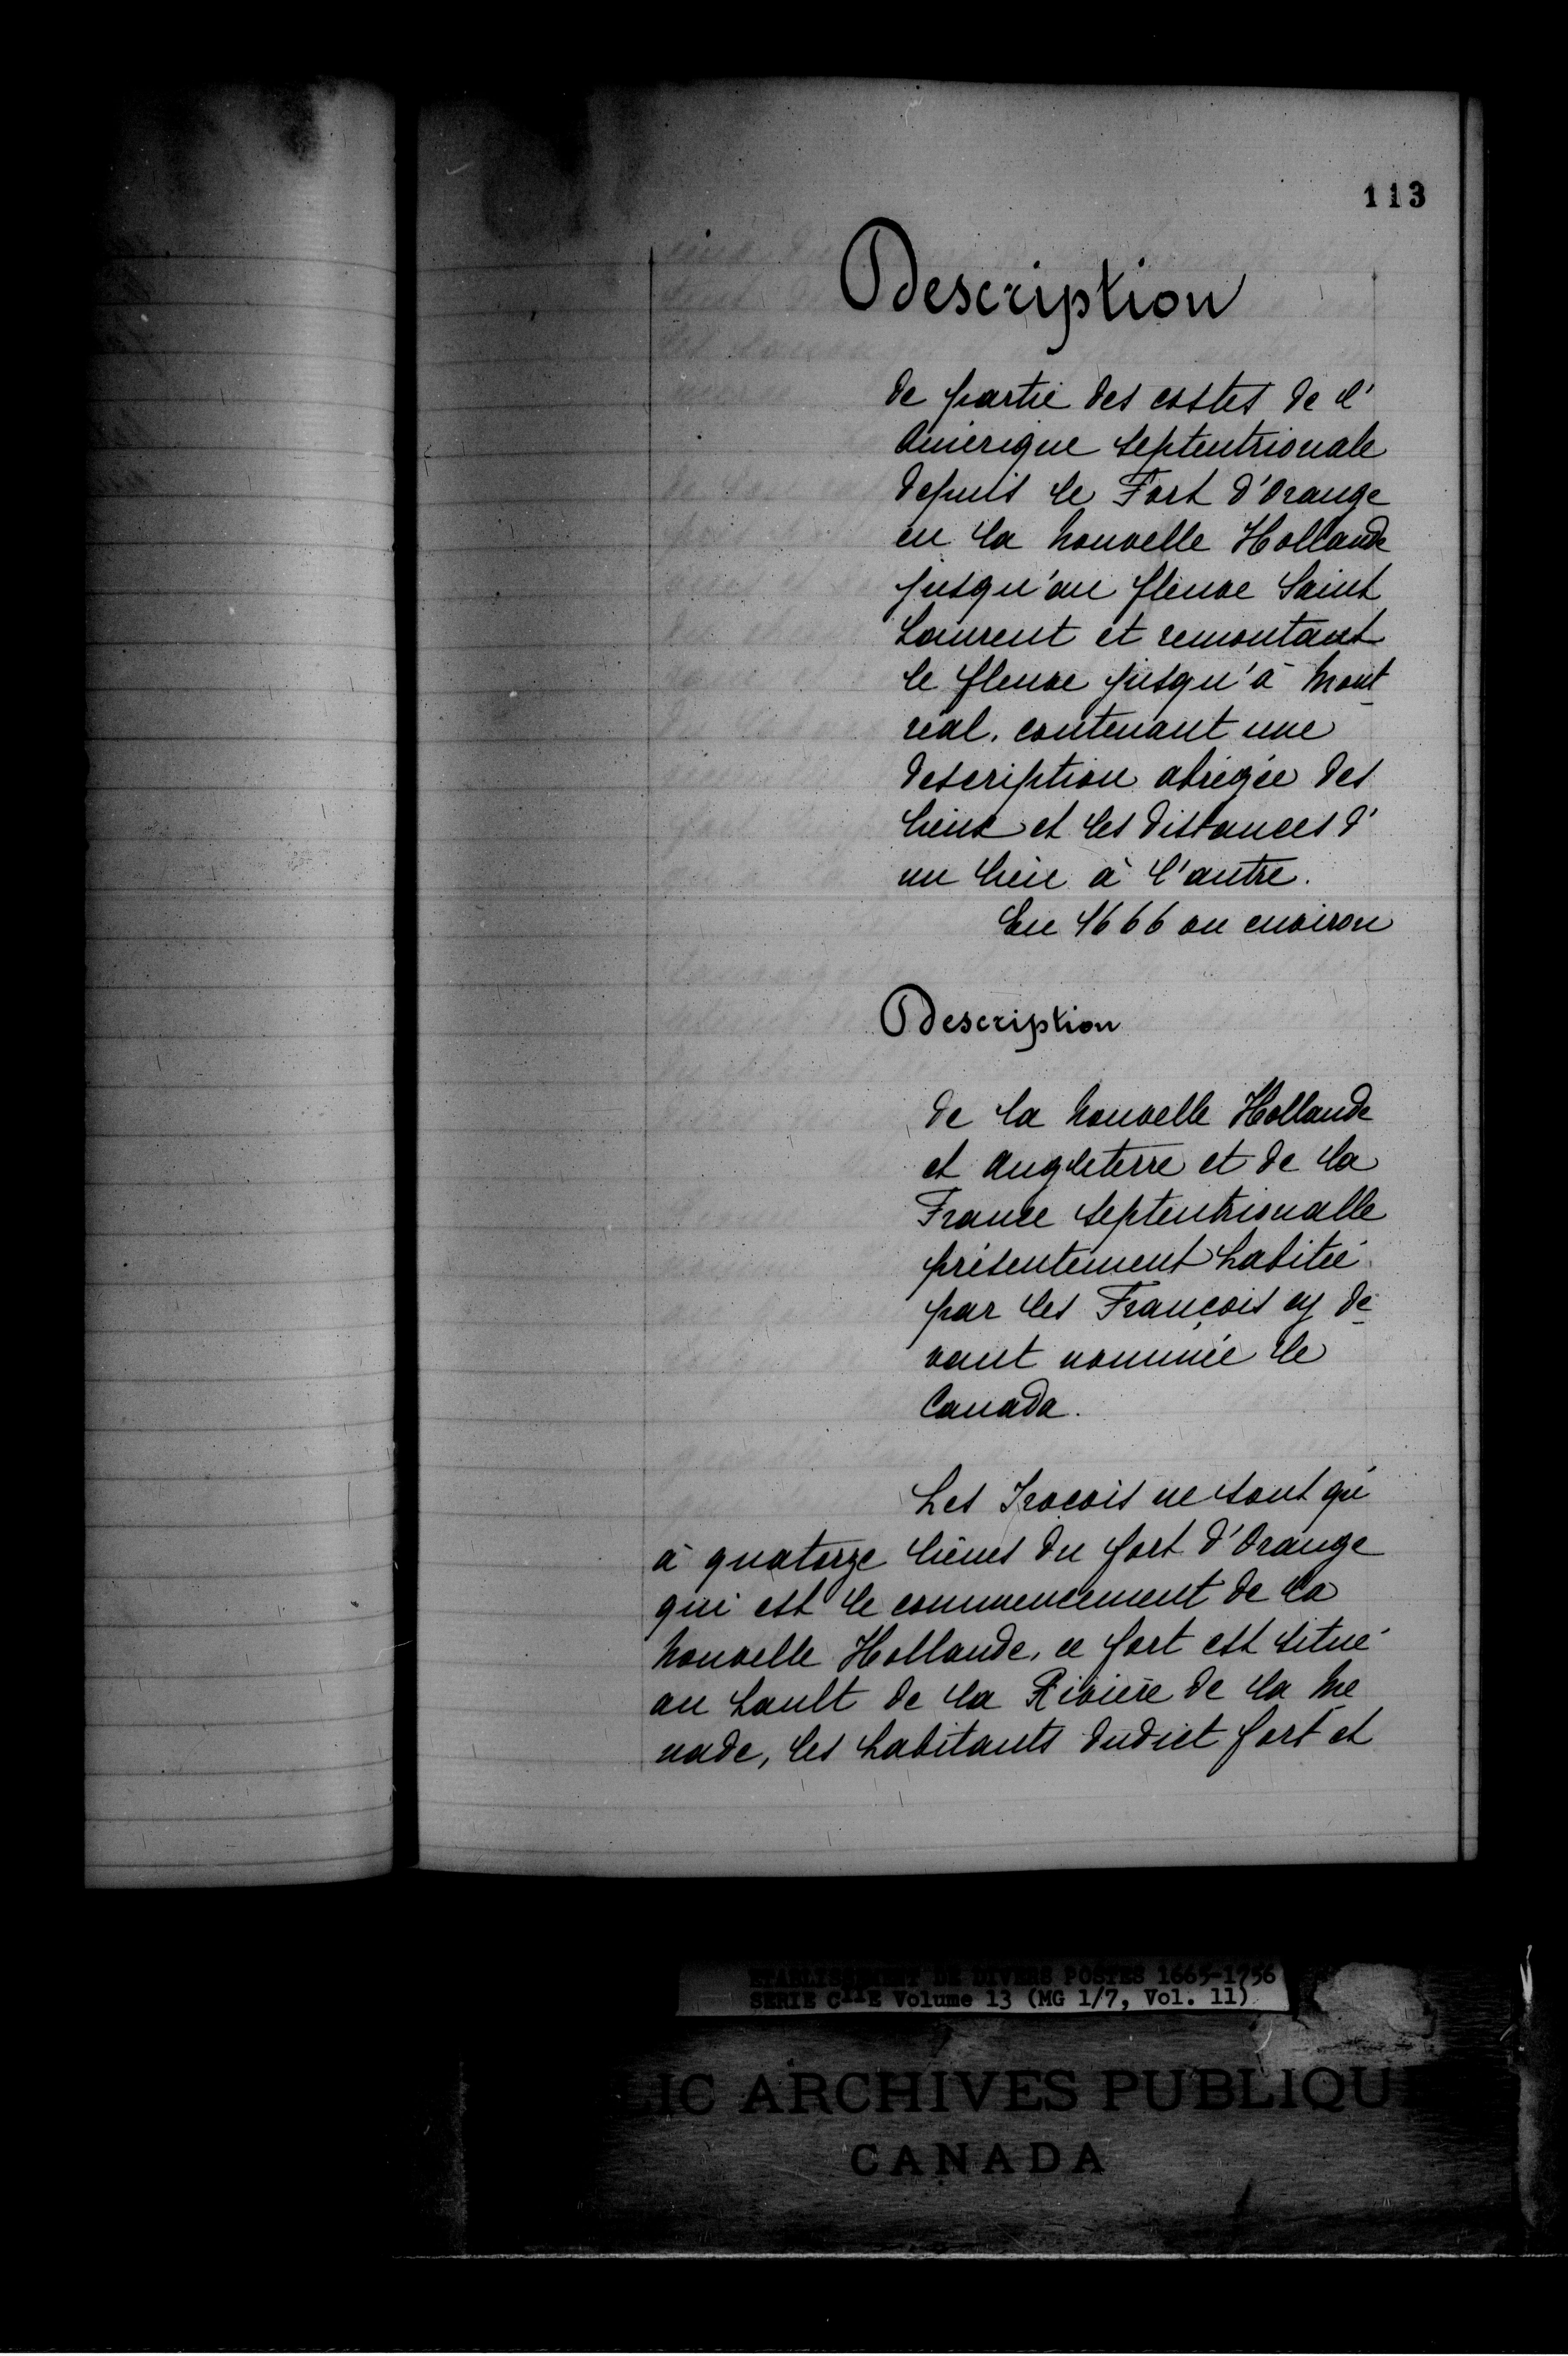 113
Description
de partie des costes de l'
Amérique septentrionale
depuis le Fort d'Orange
en la nouvelle Hollande
jusqu'au fleuve Saint
Laurent et remontant
le fleuve jusqu'à Mont
réal, contenant une
description abrégée des
lieux et les distances d'
un lieu à l'autre.
En 1666 ou environ
Description
de la nouvelle Hollande
et Angleterre et de la
France septentrionalle
présentement habitée
par les François cy de-
vant nommée le
Canada.
Les Irocois ne sont qu'
à quatorze lieues du fort d'Orange
qui est le commencement de la
nouvelle Hollande, ce fort est situé
au hault de la Rivière de la Me
nade, les habitants dudict fort et
ETABLISSEMENT DE DIVERS POSTES 1665-1756
SERIE C11E Volume 13 (MG 1/7, Vol. 11)
LIC ARCHIVES PUBLIQU
CANADA